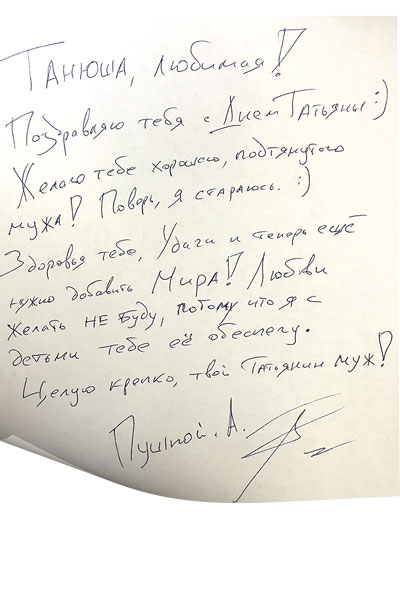 Танюша, любимая!
Поздравляю тебя с Днем Татьяны :)
Желаю тебе хорошего, подтянутого
мужа! Поверь, я стараюсь. :)
Здоровья тебе, Удачи и теперь ещё
нужно добавить Мира! Любви
желать НЕ Буду, потому что я с
детьми тебе её обеспечу.
Целую крепко, твой Татьянин муж!
Пушной. А.